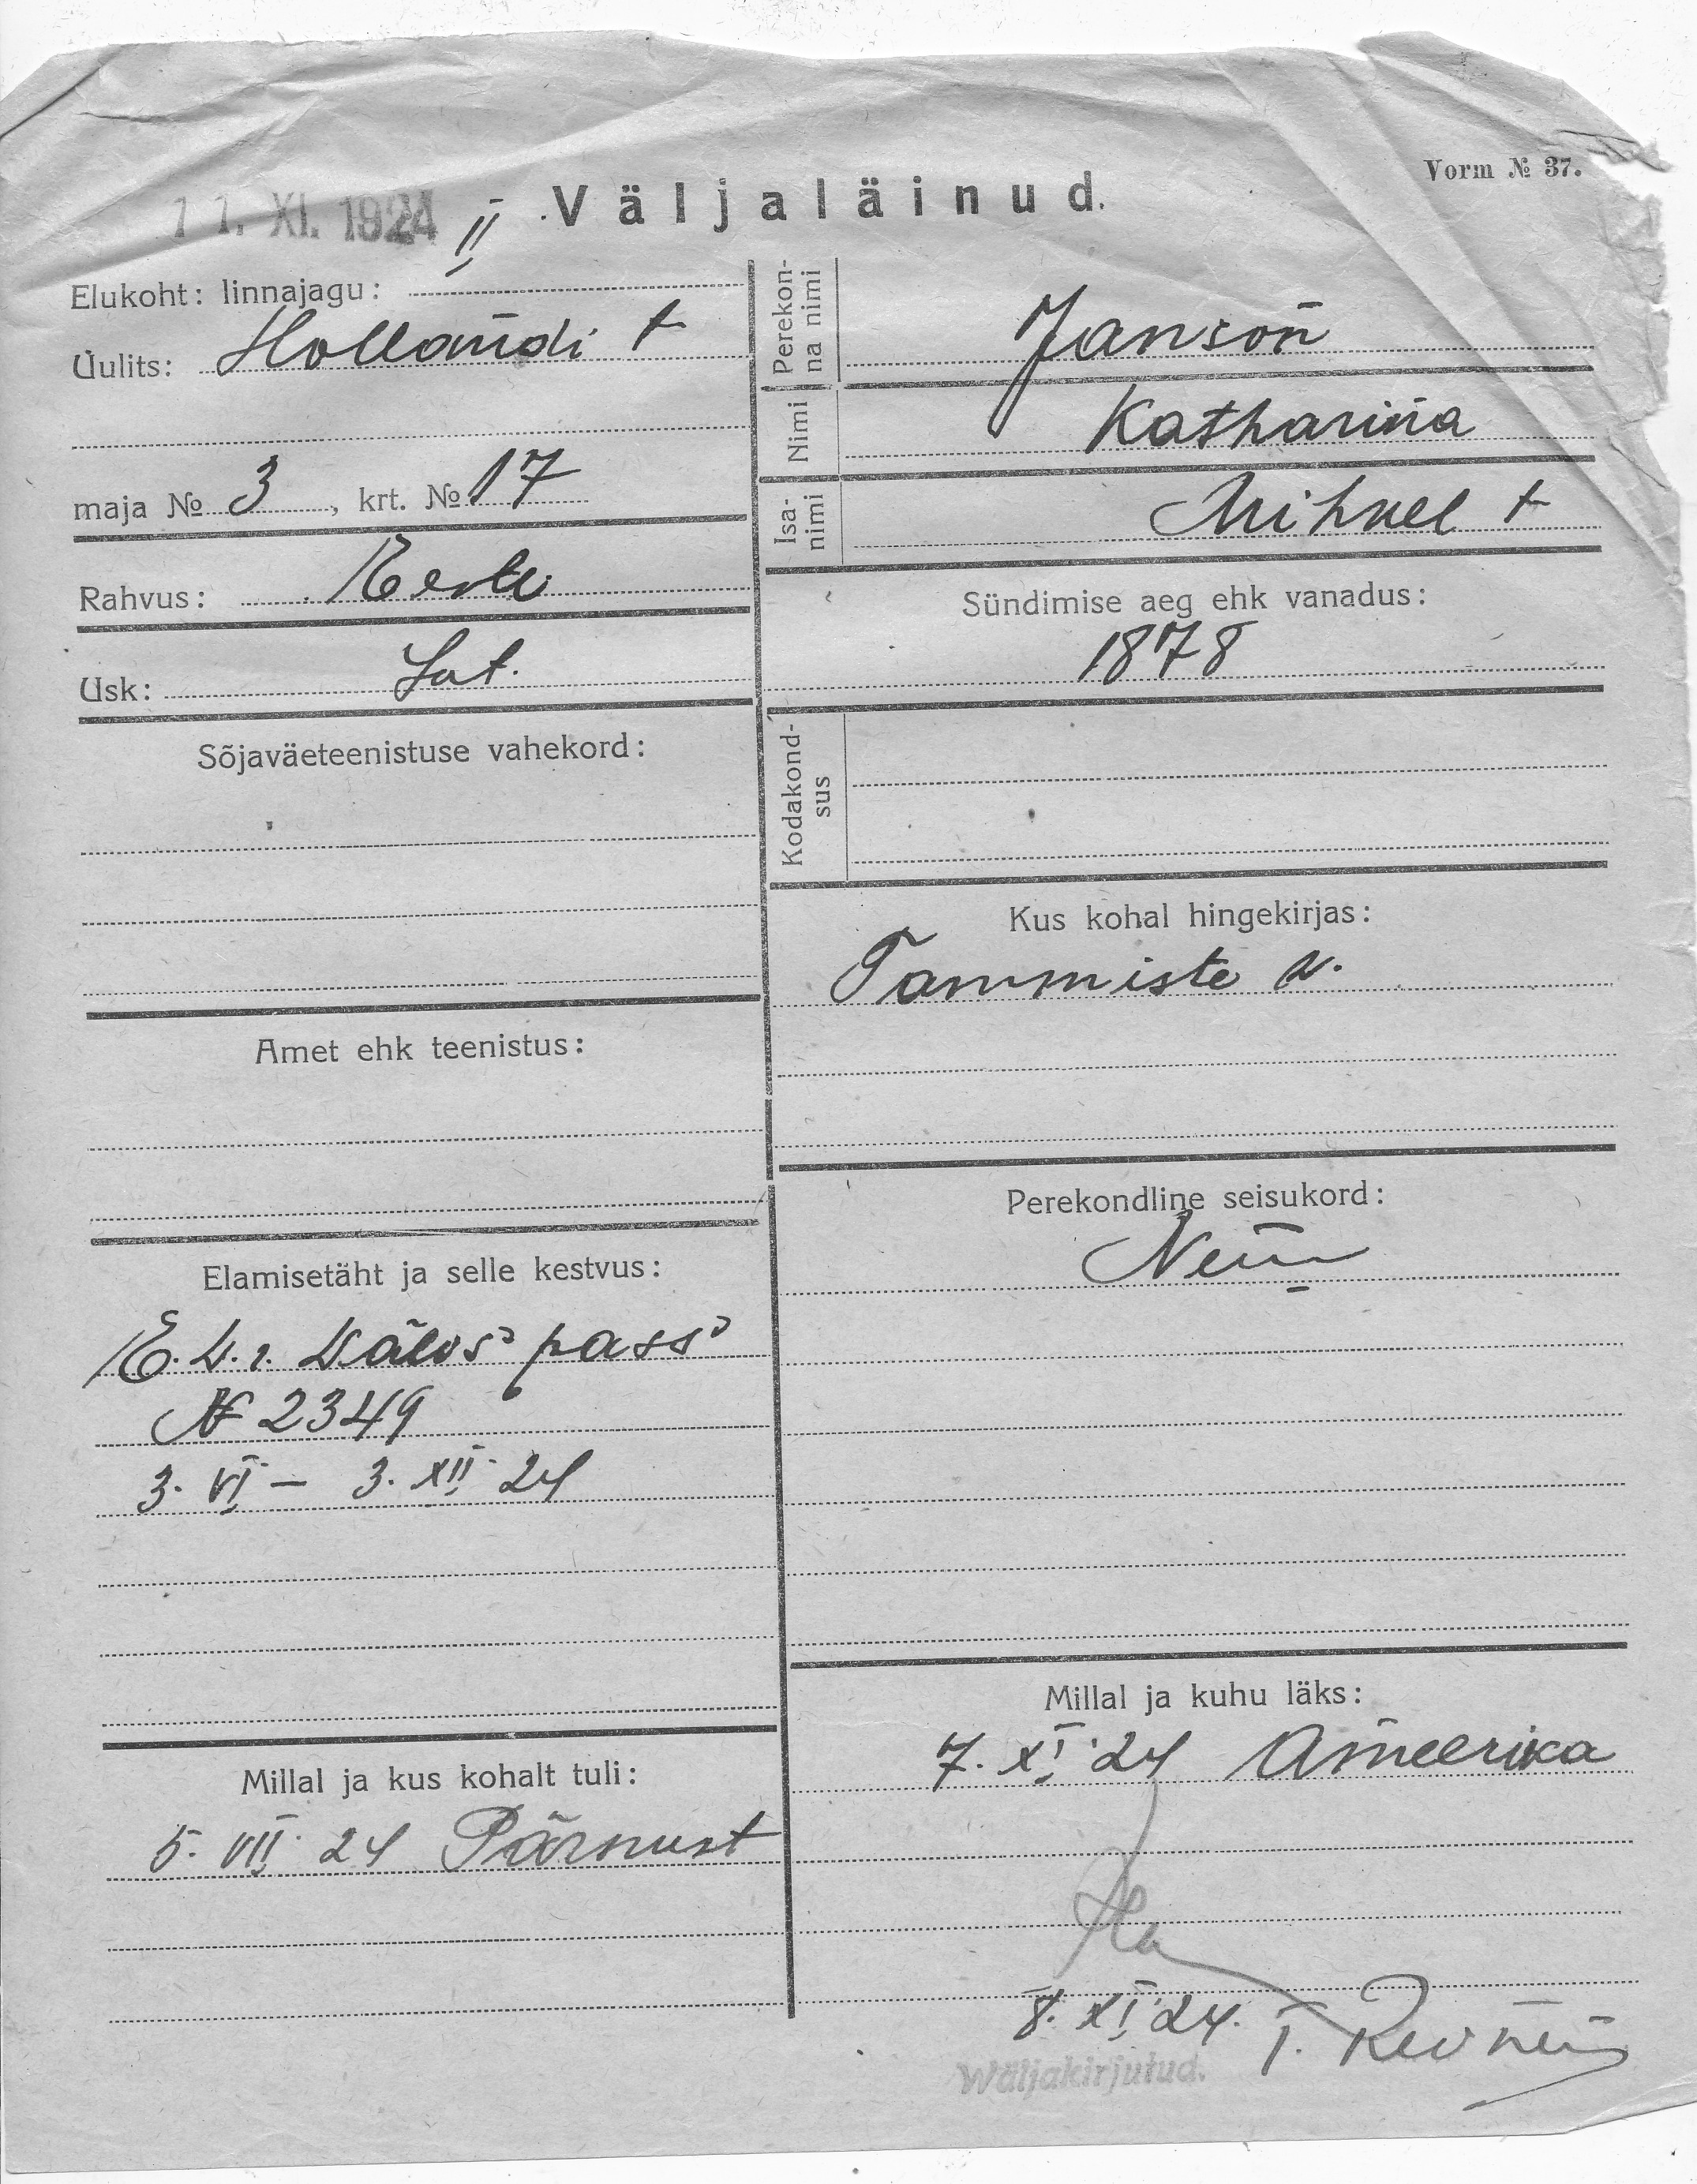 Vorm № 37.
11. XI. 1924
Väljaläinud.
Elukoht: linnajagu: II
Uulits: Hollandi t
maja № 3, krt. № 17
Rahvus: Eesti
Usk: Lut.
Sõjaväeteenistuse vahekord:
Amet ehk teenistus:
Elamisetäht ja selle kestvus:
E. W. r. Wälis pass
№ 2349
3. VI – 3. XII 24
Millal ja kus kohalt tuli:
5. VII 24 Pärnust
Perekonna nimi Janson
Nimi Katharina
Isanimi Mihkel t
Sündimise aeg ehk vanadus:
1878
Kodakondsus
Kus kohal hingekirjas:
Tammiste v.
Perekondline seisukord:
Millal ja kuhu läks:
7. XI 24 Ameerika
8. XI 24.
Wäljakirjutud.